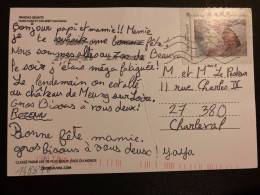 PANDAS GÉANTS
Bonjour papi et mamie!! Mamie
je te souhaite une bonne fête!
Nous sommes allés au zoo de Beauval
Le soir j'étais méga fatiguée!
Le lendemain on est allé
au château de Meung sur Loire.
Gros Bisous à vous deux!
Bonne fête mamie,
gros bisous à vous deux!
yaya
M. et Mme Le
11 rue Charles IX
27 380
Charleval
CLASSÉ PARMI LES 10 PLUS BEAUX ZOOS DU MONDE
ZOOBEAUVAL.COM